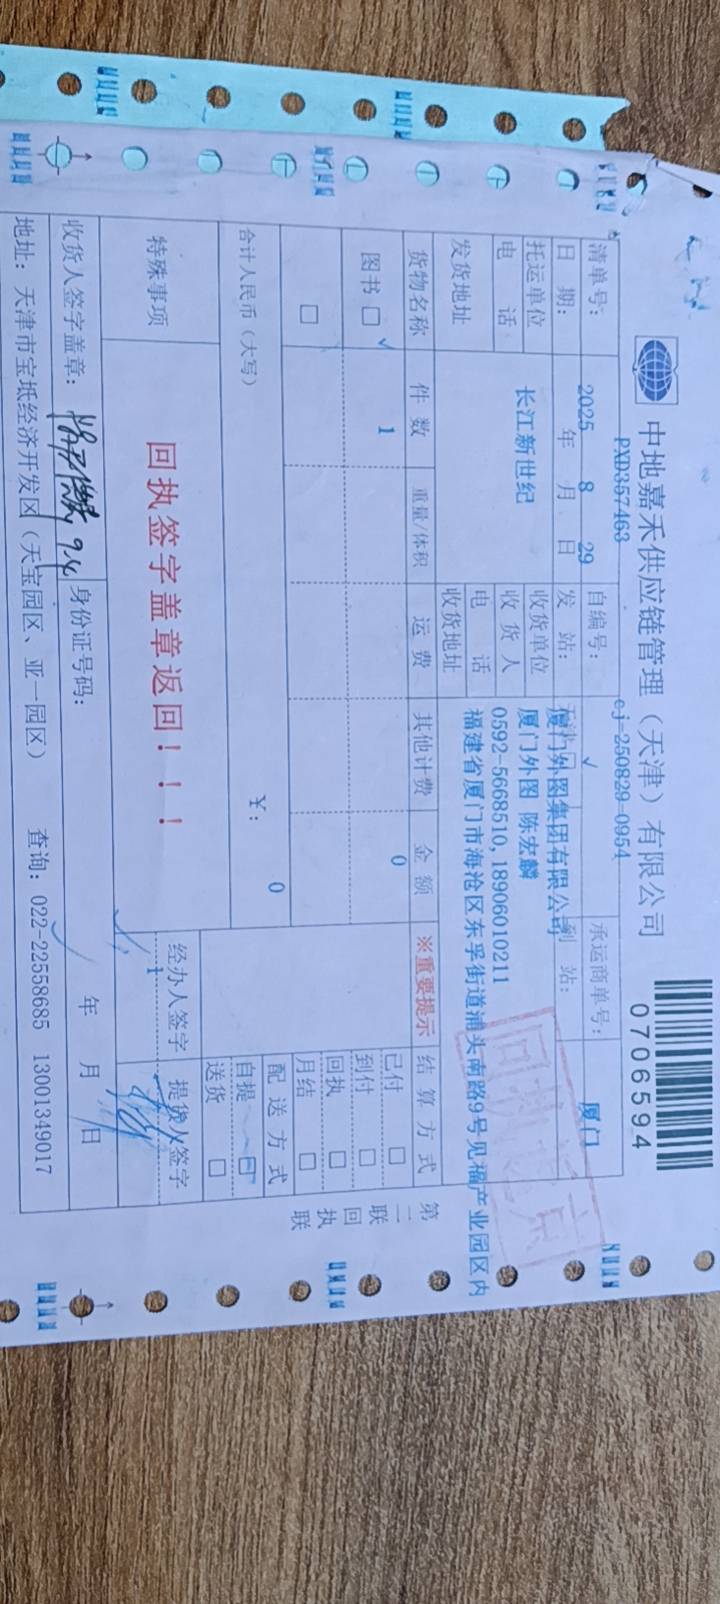 中地嘉禾供应链管理（天津）有限公司
0706594
清单号： PXD357463 自编号： cj-250829-0954 承运商单号：
日 期： 2025 年 8 月 29 日 发 站： 到 站： 厦门
托运单位 长江新世纪 收货单位 厦门外图集团有限公司
电 话 收 货 人 厦门外图 陈宏麟
电 话 0592-5668510,18906010211
发货地址 收货地址 福建省厦门市海沧区东孚街道浦头南路9号见福产业园区内
货物名称 件 数 重量/体积 运 费 其他计费 金 额 ※重要提示 结 算 方 式
图书 □ ✓ 1 0 已付 □
到付 □
回执 □
□ 月结 □
合计人民币（大写） ¥： 0 配 送 方 式
自提 □
送货 □
特殊事项 回执签字盖章返回！！！ 经办人签字 提货人签字
1
收货人签字盖章： 9.4 身份证号码： 年 月 日
地址：天津市宝坻经济开发区（天宝园区、亚一园区） 查询：022-22558685 13001349017
第二联 回执联